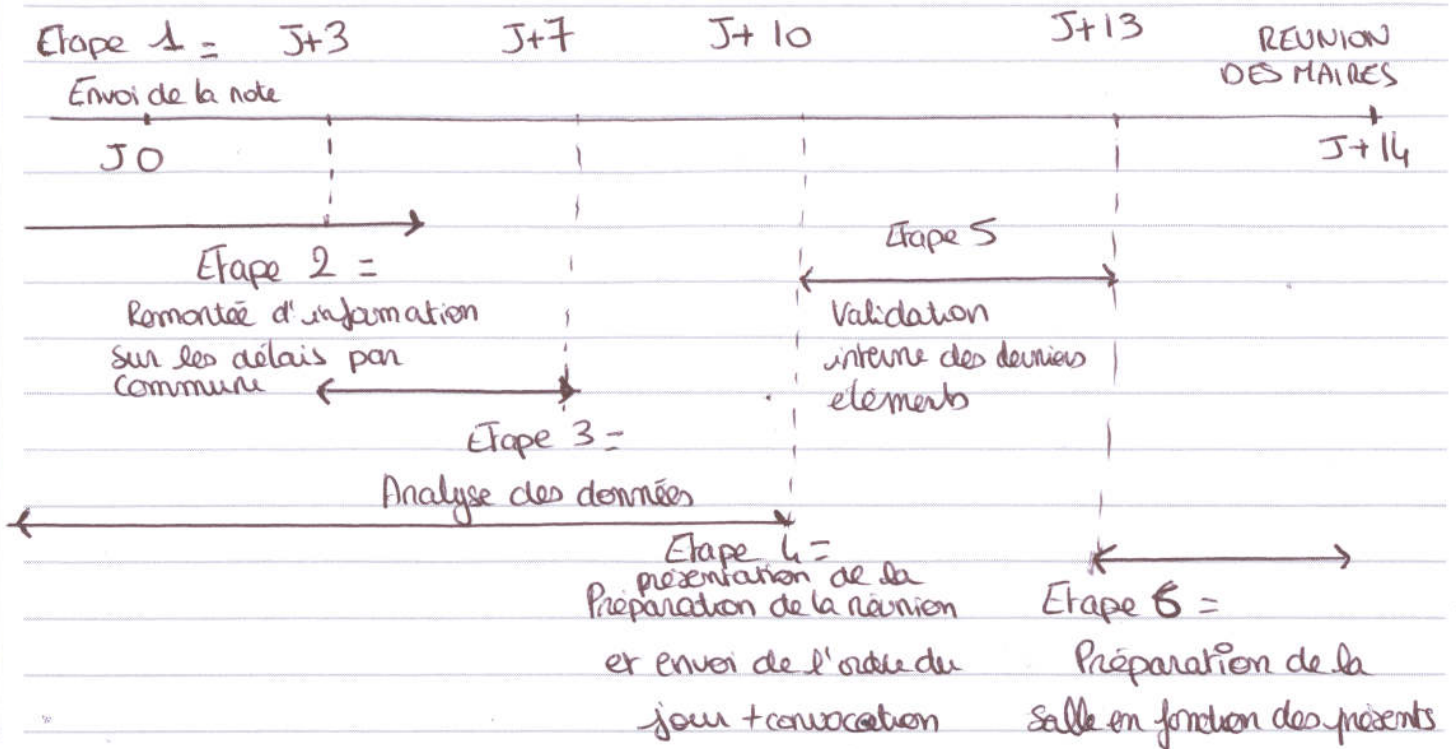 Etape 1 = J+3 J+7 J+10 J+13 REUNION
DES MAIRES
Envoi de la note
J0 J+14
Etape 2 =
Remontée d'information
sur les délais par
commune
Etape 5
Validation
interne des derniers
éléments
Etape 3 =
Analyse des données
Etape 4 =
présentation de la
Préparation de la réunion
et envoi de l'ordre du
jour + convocation
Etape 6 =
Préparation de la
salle en fonction des présents